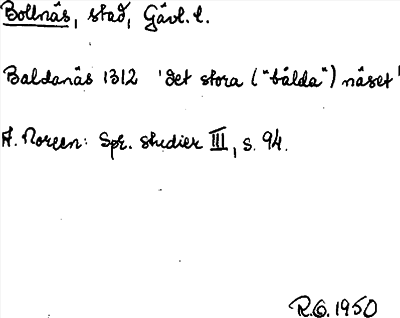 Bollnäs, stad, Gävl. l.
Baldanäs 1312 'det stora ("bålda") näset'
A. Noreen: Spr. studier III, s. 94.
R.G. 1950